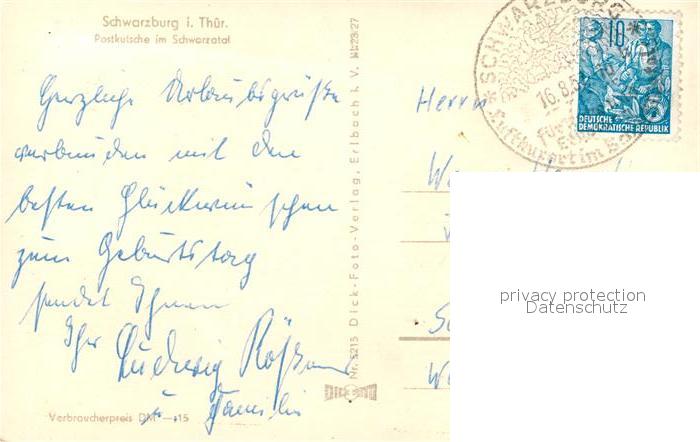 Schwarzburg i. Thür.
Postkutsche im Schwarzatal
Herzliche Urlaubsgrüße
verbunden mit den
besten Glückwünschen
zum Geburtstag
sendet Ihnen
Ihr Ludwig
u. Familie
Verbraucherpreis DM —.15
Nr. 5215 Dick-Foto-Verlag, Erlbach i. V.
DICK
SCHWARZBURG
16.8.
Luftkurort im
10
DEUTSCHE
DEMOKRATISCHE REPUBLIK
Herrn
privacy protection
Datenschutz